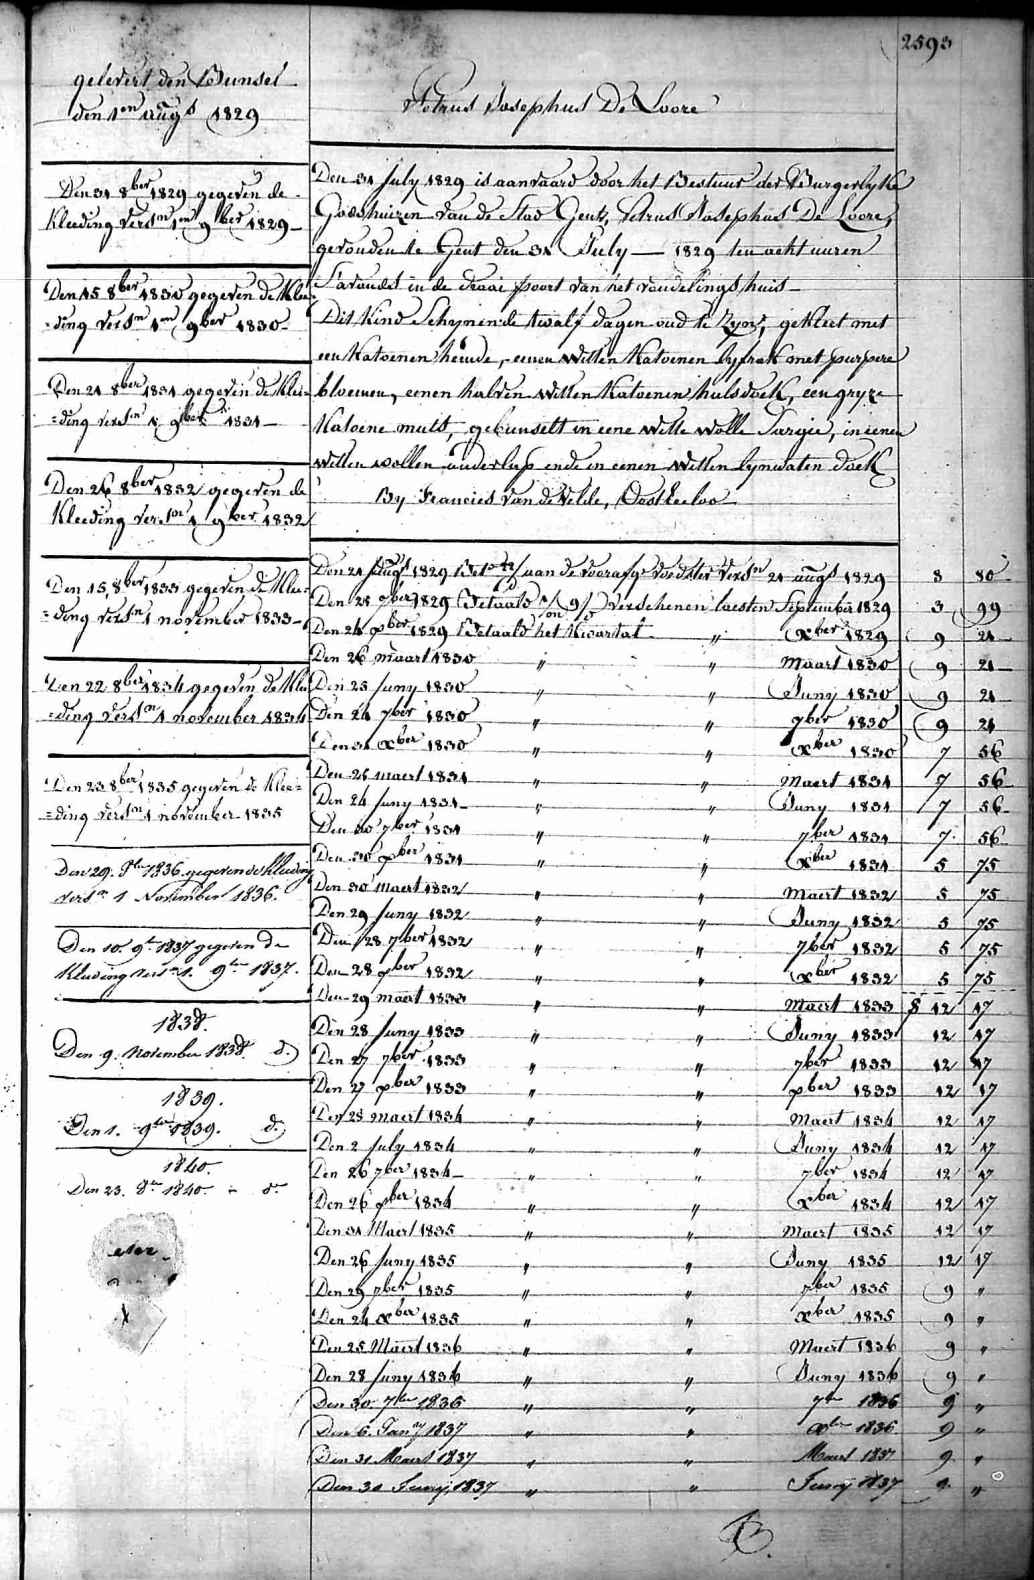 2593
gelevert den Bunsel
den 1en augs 1829
Den 31 8ber 1829 gegeven de
Kleeding versn 1en 9ber 1829
Den 15 8ber 1830 gegeven de Klee=
=ding versn 1en 9ber 1830
Den 21 8ber 1831 gegeven de Klee=
=ding versn 1 9ber 1831
Den 26 8ber 1832 gegeven de
Kleeding versn 1 9ber 1832
Den 15 8ber 1833 gegeven de Klee=
=ding versn 1 november 1833
Den 22 8ber 1834 gegeven de Klee
=ding versn 1 november 1834
Den 23 8ber 1835 gegeven de Klee=
=ding versn 1 november 1835
Den 29. 8br 1836 gegeven de Kleeding
versn 1 November 1836.
Den 10. 9r 1837 gegeven de
Kleeding versn 1. 9ber 1837.
1838.
Den 9. November 1838. do
1839.
Den 1. 9ber 1839. do
1840.
Den 23. 8br 1840. - do
Petrus Josephus De Loore
Den 31 July 1829 is aanvaard door het Bestuur der Burgerlyke
Godshuizen van de Stad Gent, Petrus Josephus De Loore,
gevonden te Gent den 31 July — 1829 ten acht uuren
S'avonds in de draai poort van het vondelings huis
Dit Kind Schynende twalf dagen oud te Zyn, gekleet met
een Katoenen hemde, eenen Witten Katoenen lyfrok met purpere
bloemen, eenen halven witten Katoenen halsdoek, een gryze
Katoene muts, gebunselt in eene Witte wolle Sargie, in eenen
Witten wollen onderlup ende in eenen Witten lynwaten doek
By Francies van de Velde, Oostkeeloo
Den 21 augs 1829 Beto aan de voorafge voedster versn 21 augs 1829 3 80
Den 21 9ber 1829 Betaald verschenen laesten September 1829 3 99
Den 24 xber 1829 Betaald het Kwartal " xber 1829 9 21
Den 26 maart 1830 " " Maart 1830 9 21
Den 25 Juny 1830 " " Juny 1830 9 21
Den 24 7ber 1830 " " 7ber 1830 9 21
Den 31 xber 1830 " " xber 1830 7 56
Den 25 maert 1831 " " Maert 1831 7 56
Den 24 Juny 1831 " " Juny 1831 7 56
Den 30 7ber 1831 " " 7ber 1831 7 56
Den 30 xber 1831 " " xber 1831 5 75
Den 30 Maert 1832 " " Maert 1832 5 75
Den 29 Juny 1832 " " Juny 1832 5 75
Den 28 7ber 1832 " " 7ber 1832 5 75
Den 28 xber 1832 " " xber 1832 5 75
Den 29 maert 1833 " " Maert 1833 12 17
Den 28 Juny 1833 " " Juny 1833 12 17
Den 27 7ber 1833 " " 7ber 1833 12 17
Den 27 xber 1833 " " xber 1833 12 17
Den 28 maert 1834 " " Maert 1834 12 17
Den 2 July 1834 " " Juny 1834 12 17
Den 26 7ber 1834 " " 7ber 1834 12 17
Den 26 xber 1834 " " xber 1834 12 17
Den 31 Maert 1835 " " Maert 1835 12 17
Den 26 Juny 1835 " " Juny 1835 12 17
Den 29 7ber 1835 " " 7ber 1835 9 "
Den 24 xber 1835 " " xber 1835 9 "
Den 25 Maert 1836 " " Maert 1836 9 "
Den 28 Juny 1836 " " Juny 1836 9 "
Den 30. 7ber 1836 " " 7br 1836 9 "
Den 6. Jany 1837 " " xbr 1836 9 "
Den 31 Maert 1837 " " Maert 1837 9 "
Den 30 Juny 1837 " " Juny 1837 9 "